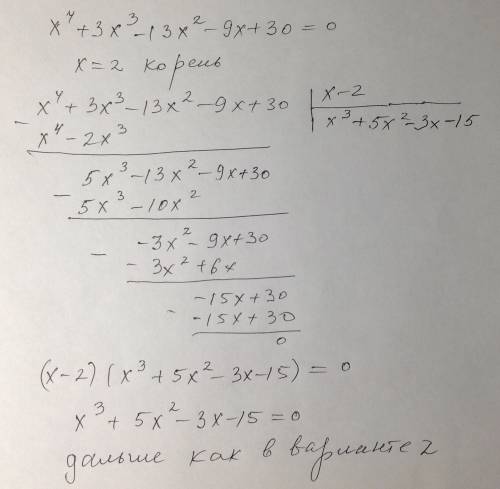 x⁴+3x³-13x²-9x+30=0
x=2 корень
x⁴+3x³-13x²-9x+30 | x-2
- x⁴-2x³ | x³+5x²-3x-15
5x³-13x²-9x+30
- 5x³-10x²
-3x²-9x+30
- -3x²+6x
-15x+30
- -15x+30
0
(x-2)(x³+5x²-3x-15)=0
x³+5x²-3x-15=0
дальше как в варианте 2